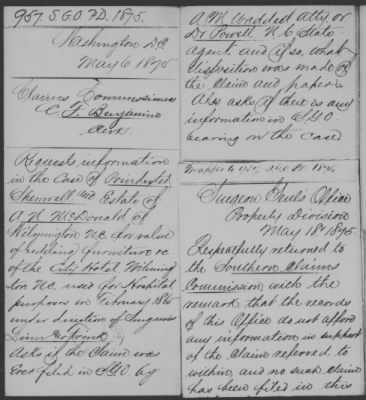 957. S.G.O. P.D. 1875.
Washington D.C.
May 6 1875
Claims Commissioner
C. F. Benjamin
Clerk
Requests information
in the Case of Poindexter
Shemwell and Estate of
A. N. McDonald of
Wilmington N.C. for value
of bedding furniture &c
of the City Hotel Wilming
ton N.C. used for Hospital
purposes in February 1865
under direction of Surgeons
Asks if the Claim was
ever filed in SGO by
A M Waddell atty. or
Dr Powell N.C. State
Agent. and if so, what
disposition was made of
the Claim and papers
Also asks if there is any
information in SGO
bearing on the case
Surgeon Genl's Office
Property Division
May 18" 1875
Respectfully returned to
the Southern Claims
Commission with the
remark that the records
of this Office do not afford
any information in support
of the Claim referred to
within, and no such claim
has been filed in this